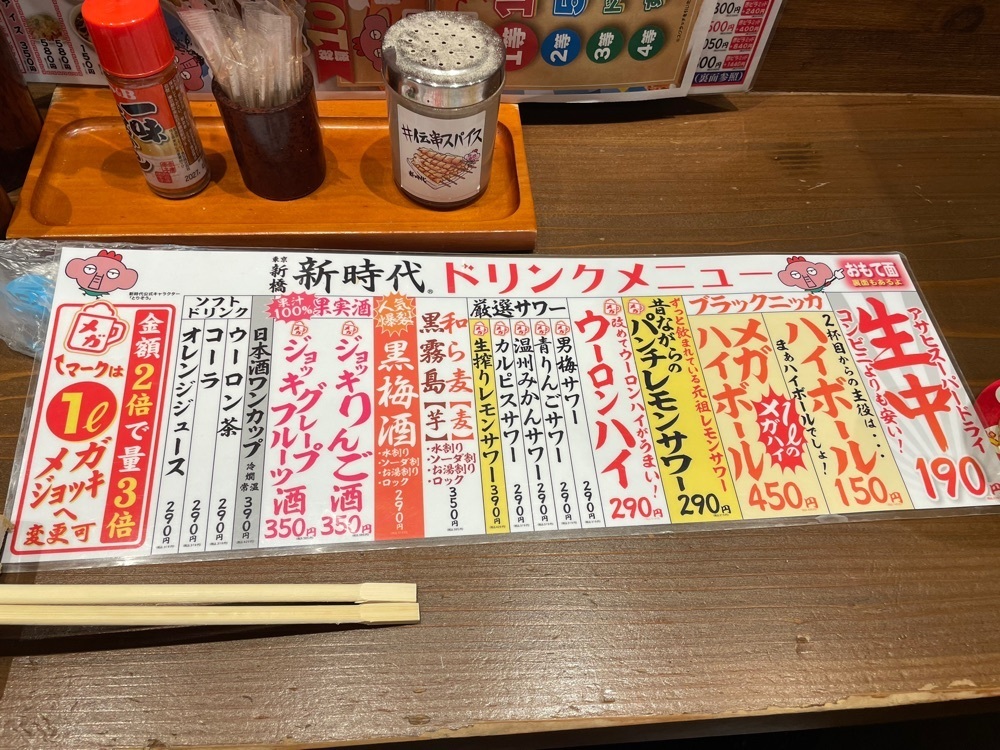 #伝串スパイス
新時代
一味
2027.
1等
2等
3等
4等
(裏面参照)
東京
新橋
新時代
ドリンクメニュー
おもて面
裏面もあるよ
新時代公式キャラクター
「とりぞう」
アサヒスーパードライ
生中
コンビニよりも安い!
190円
2杯目からの主役は・・
ハイボール
まぁハイボールでしょ!
150円
ブラックニッカ
メガハイボール
1ℓのメガハイ
450円
ずっと飲まれている元祖レモンサワー
昔ながらの
パンチレモンサワー
290円
改めてウーロンハイがうまい!
ウーロンハイ
290円
厳選サワー
男梅サワー
290円
青りんごサワー
290円
温州みかんサワー
290円
カルピスサワー
290円
生搾りレモンサワー
390円
和ら麦【麦】
黒霧島【芋】
・水割り
・ソーダ割り
・お湯割り
・ロック
350円
人気爆裂
黒梅酒
・水割り
・ソーダ割
・お湯割り
・ロック
290円
果汁100%
果実酒
ジョッキりんご酒
350円
ジョッキグレープフルーツ酒
350円
日本酒ワンカップ
冷 燗 常温
390円
ソフトドリンク
ウーロン茶
290円
コーラ
290円
オレンジジュース
290円
金額2倍で量3倍
メガ
マークは
1ℓ
メガジョッキへ
変更可